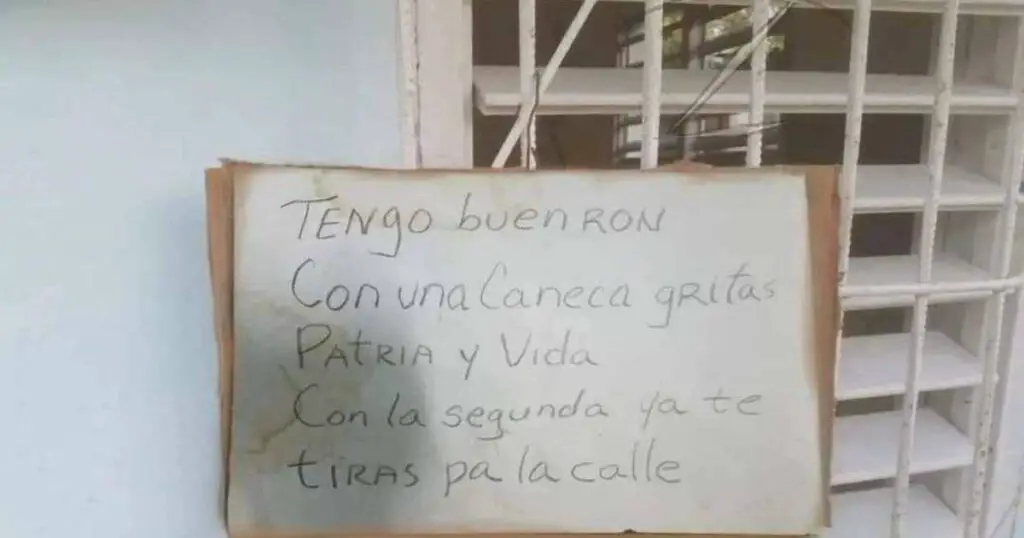 TENGO buen RON
Con una Caneca gRitas
PAtRIA y Vida
Con la segunda ya te
tiRAS pa la calle